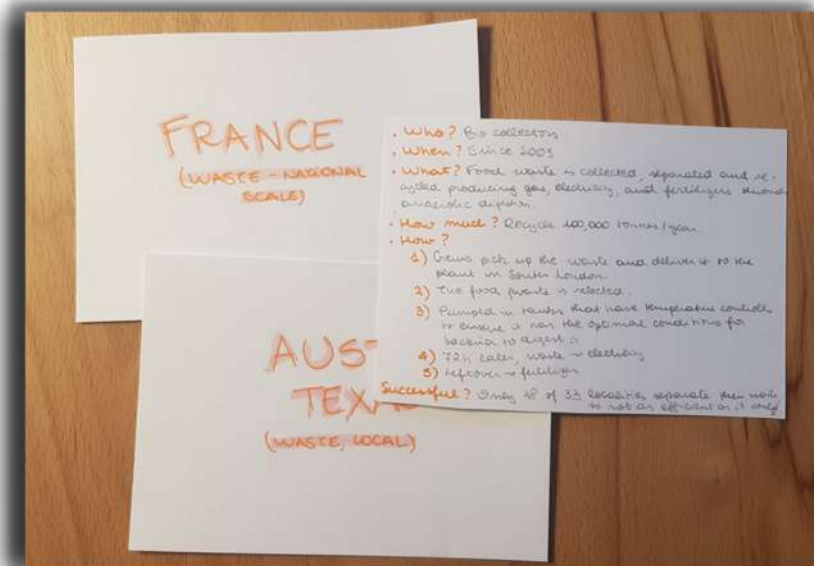 FRANCE
(WASTE - NATIONAL
SCALE)
• Who? Bio collectors
• When? Since 2005
• What? Food waste is collected, separated and re-
cycled producing gas, electricity, and fertilizers
anaerobic
• How much? Recycle 100,000 tonnes/year.
• How?
1) Crews pick up the waste and deliver it to the
plant in South London.
2) The food waste is
3) Pumped in tanks that have temperature controls
to ensure it has the optimal conditions for
bacteria to digest it
4) 72h later, waste → electricity
5) Leftover → fertilizer
Successful? Only 18 of 33 localities separate their
not as efficient as it
AUST
TEXA
(WASTE, LOCAL)